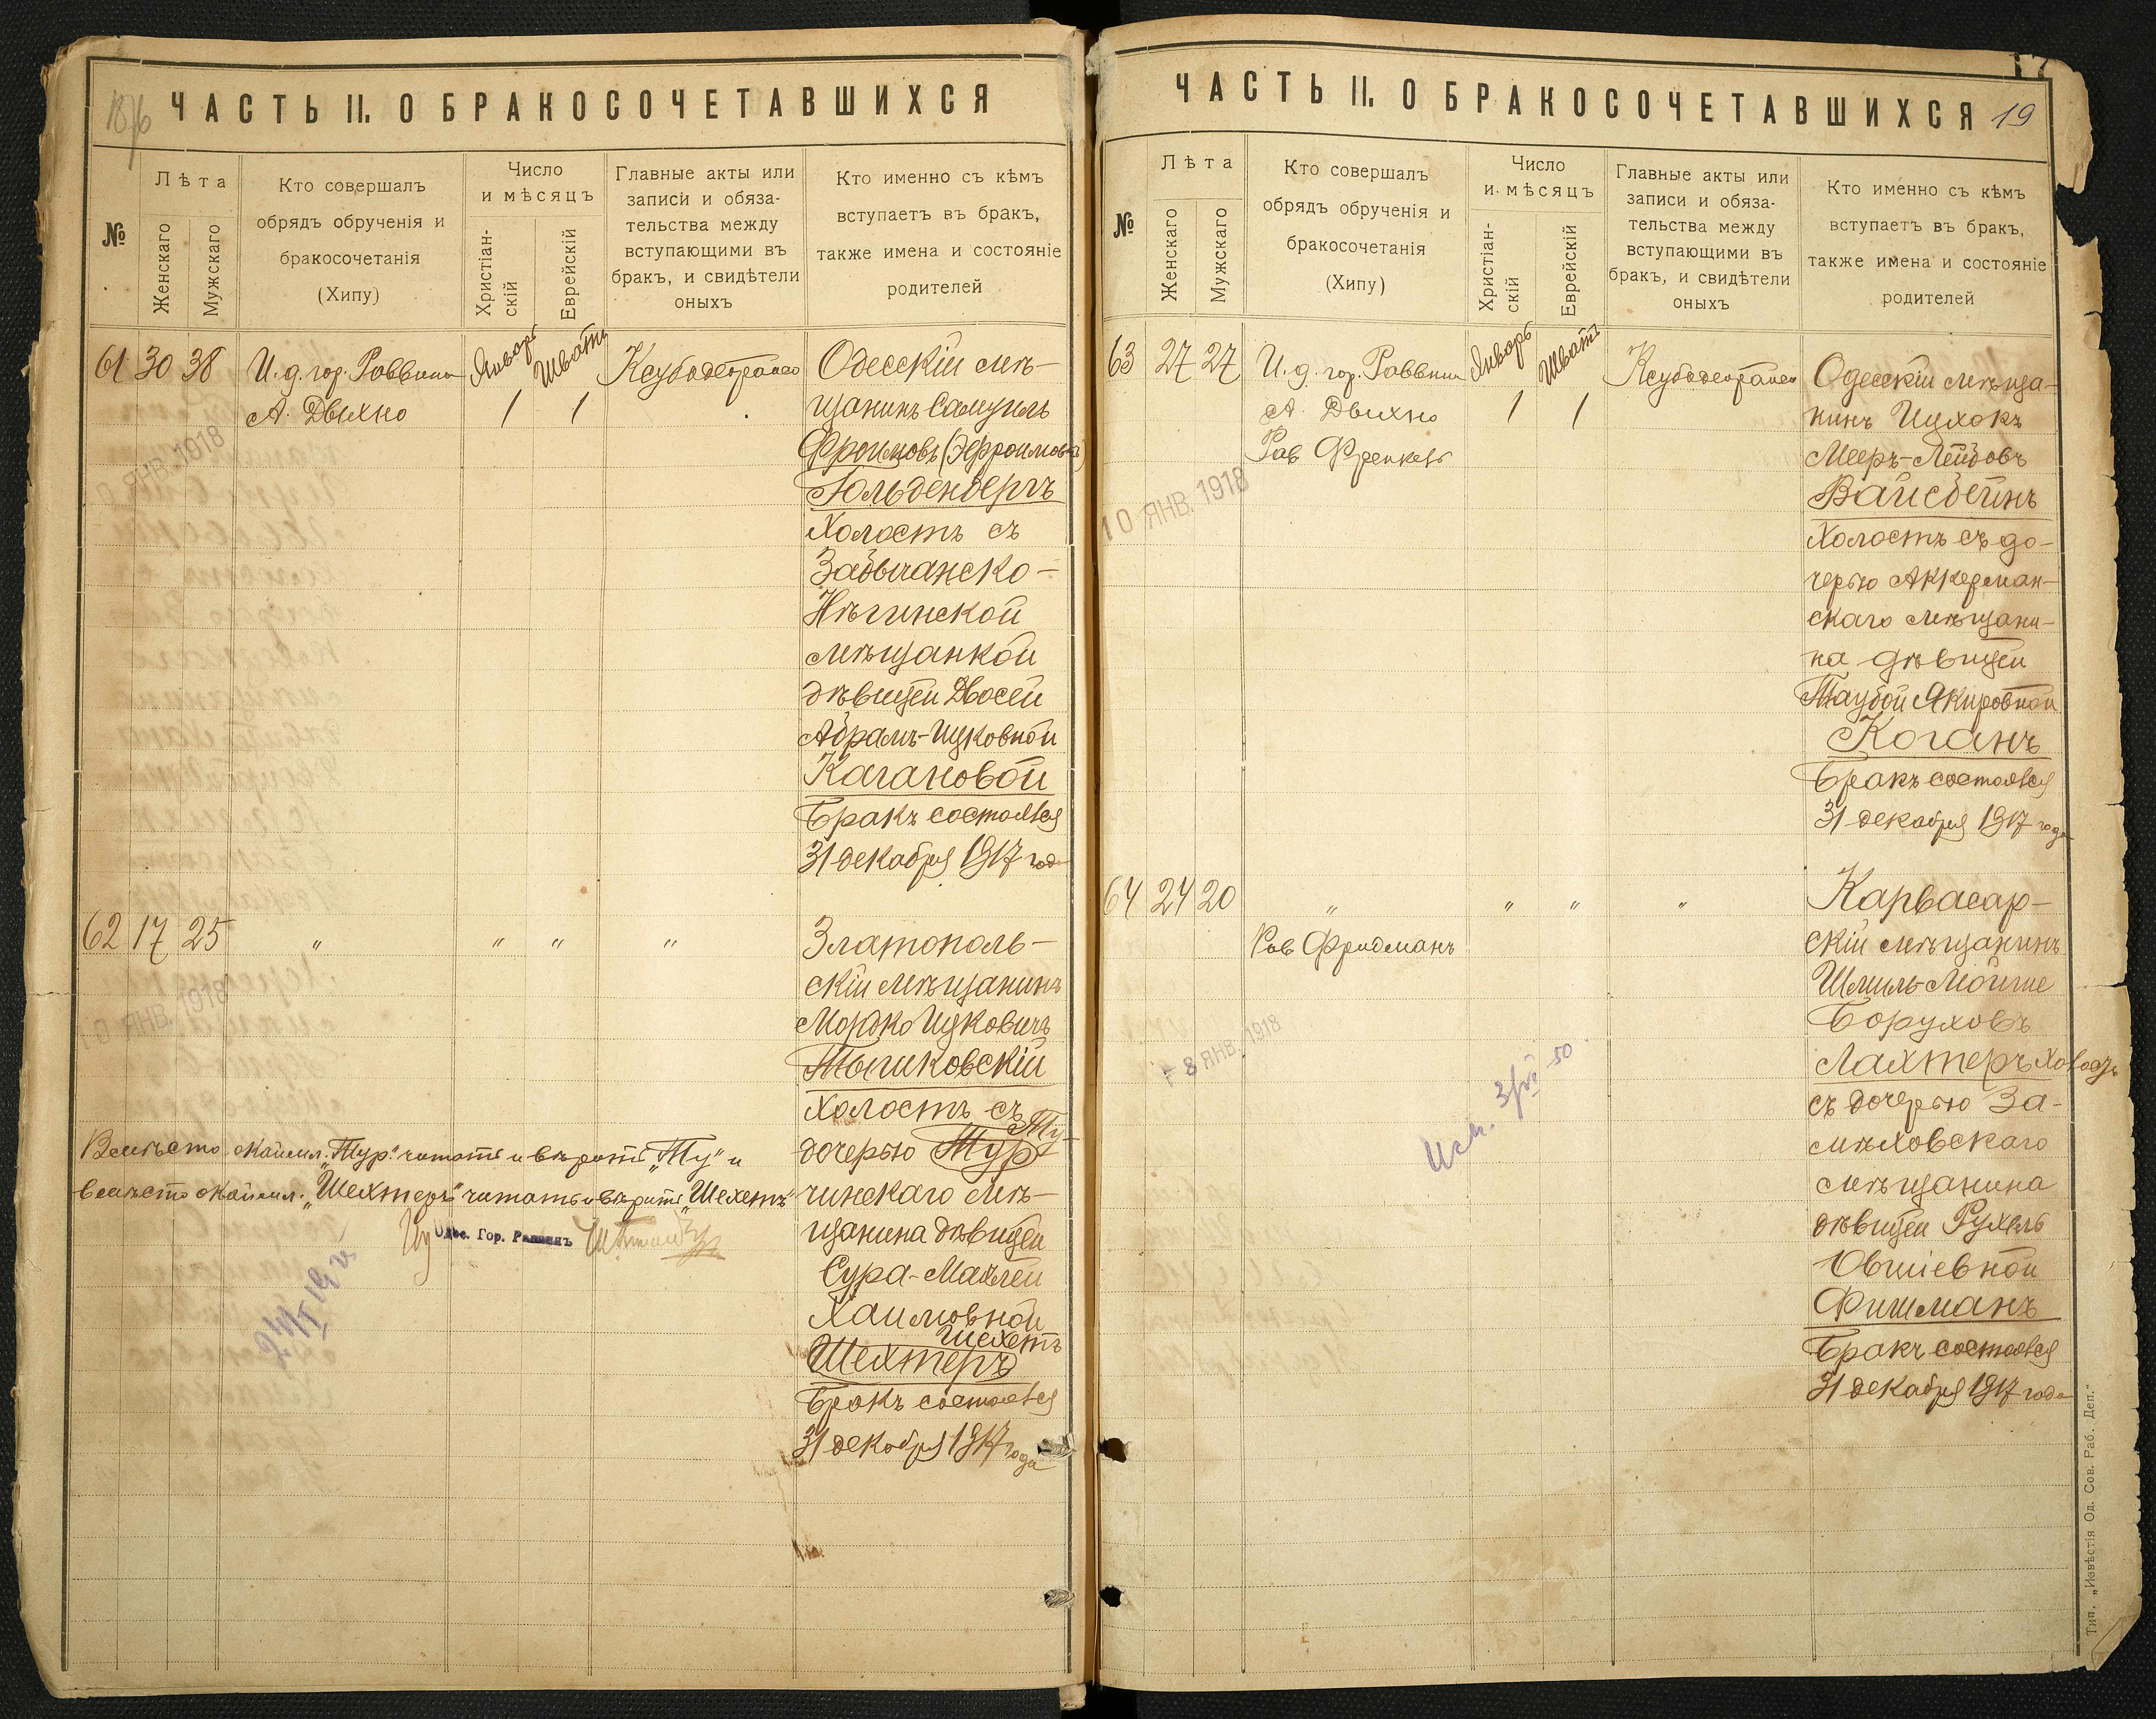 ЧАСТЬ II. О БРАКОСОЧЕТАВШИХСЯ
№
Лѣта
Женскаго
Мужскаго
Кто совершалъ
обрядъ обрученія и
бракосочетанія
(Хипу)
Число
и мѣсяцъ
Христіан-
скій
Еврейскій
Главные акты или
записи и обяза-
тельства между
вступающими въ
бракъ, и свидѣтели
оныхъ
Кто именно съ кѣмъ
вступаетъ въ бракъ,
также имена и состояніе
родителей
61 30 38
И. д. гор. Раввина
А. Двихно
Январь
1
Шватъ
1
ЯНВ. 1918
Одесскій мѣ-
щанинъ Самуилъ
Фроимовъ (Эфроимовъ)
Гольденбергъ
Холостъ съ
Забычанско-
Нѣгинской
мѣщанкой
дѣвицей Двосей
Абрамъ-Ицковной
Кагановой
Бракъ состоялся
31 декабря 1917 года
62 17 25
"
" "
"
ЯНВ. 1918
Златополь-
скій мѣщанинъ
Мордко Ицковичъ
Тышковскій
Холостъ съ
Ту-
дочерью Тур
чинскаго мѣ-
щанина дѣвицей
Сура-Малей
Хаимовной
Шехетъ
Шехтеръ
Бракъ состоялся
31 декабря 1917 года
Вмѣсто окаймл. „Тур" читать и вѣрить „Ту" и
вмѣсто окаймл. „Шехтеръ" читать и вѣрить „Шехетъ"
Одес. Гор. Раввинъ
ЧАСТЬ II. О БРАКОСОЧЕТАВШИХСЯ
19
№
Лѣта
Женскаго
Мужскаго
Кто совершалъ
обрядъ обрученія и
бракосочетанія
(Хипу)
Число
и мѣсяцъ
Христіан-
скій
Еврейскій
Главные акты или
записи и обяза-
тельства между
вступающими въ
бракъ, и свидѣтели
оныхъ
Кто именно съ кѣмъ
вступаетъ въ бракъ,
также имена и состояніе
родителей
63 27 27
И. д. гор. Раввина
А. Двихно
Рав Френкель
Январь
1
Шватъ
1
10 ЯНВ. 1918
Одесскій мѣща-
нинъ Ицхокъ
Мееръ-Лейбовъ
Вайсбейнъ
Холостъ съ до-
черью Аккерман-
скаго мѣщани-
на дѣвицей
Таубой Якировной
Коганъ
Бракъ состоялся
31 декабря 1917 года
64 24 20
"
Рав Фридманъ
" "
"
8 ЯНВ. 1918
Карвасар-
скій мѣщанинъ
Шмиль-Мойше
Боруховъ
Лахтеръ холостъ
съ дочерью За-
мѣховскаго
мѣщанина
дѣвицей Рухель
Овшіевной
Фишманъ
Бракъ состоялся
31 декабря 1917 года
Тип. „Извѣстія Од. Сов. Раб. Деп."